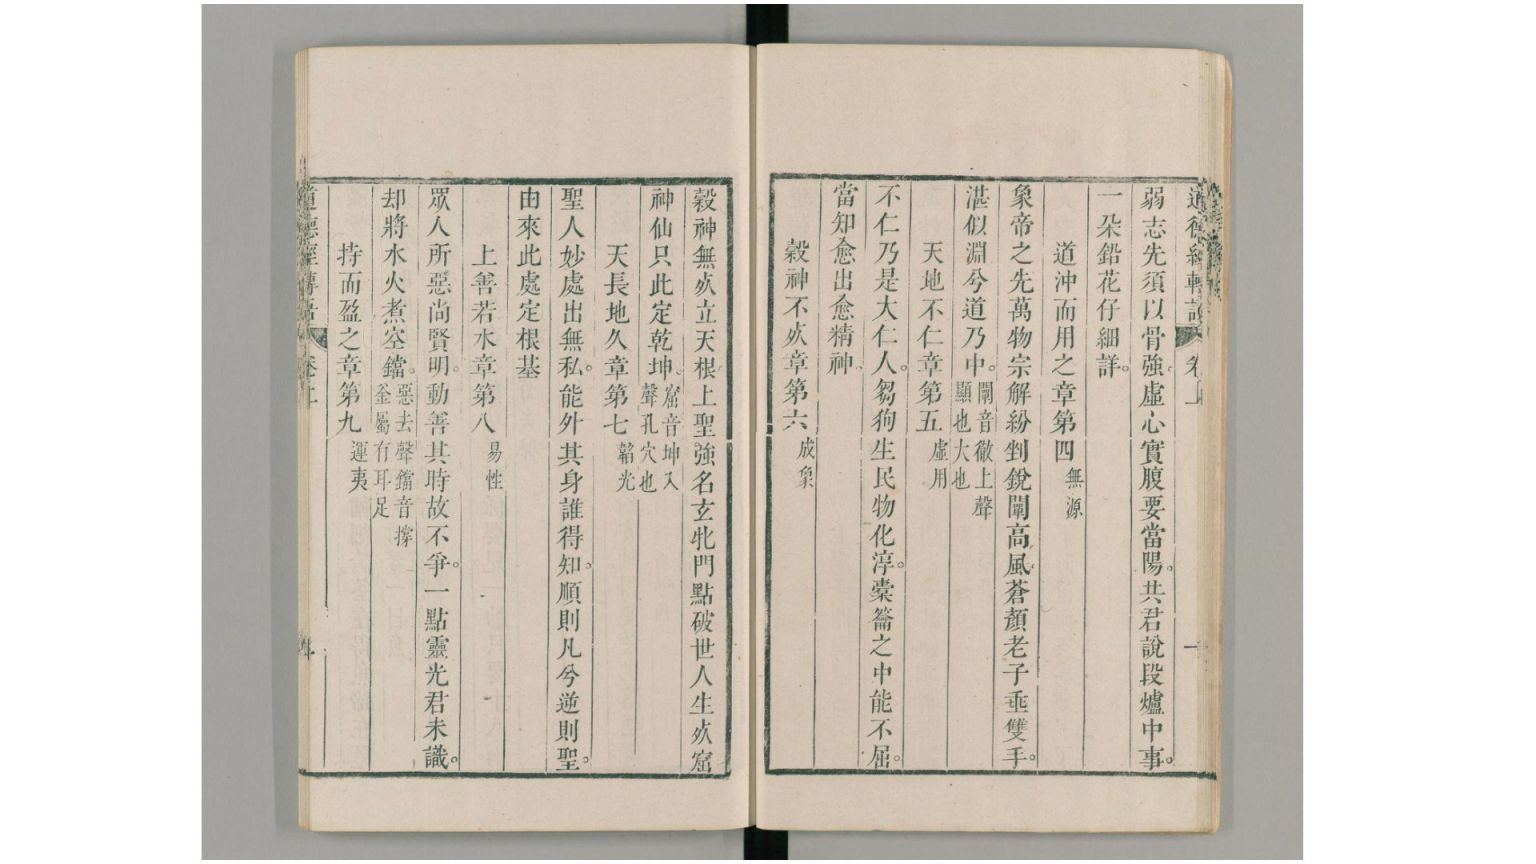 弱志先須以骨強。虛心實腹要當陽。共君說段爐中事。
一朵鉛花仔細詳。
道沖而用之章第四 無源
象帝之先萬物宗解紛剉銳闡高風。蒼顏老子垂雙手。
湛似淵兮道乃中。闡音徹上聲顯也大也
天地不仁章第五 虛用
不仁乃是大仁人。芻狗生民物化淳。橐籥之中能不屈。
當知愈出愈精神。
穀神不死章第六 成象
穀神無死立天根。上聖強名玄牝門點破世人生死窟
神仙只此定乾坤。窟音坤入聲孔穴也
天長地久章第七 韜光
聖人妙處出無私。能外其身誰得知。順則凡兮逆則聖。
由來此處定根基
上善若水章第八 易性
眾人所惡尚賢明。動善其時故不爭。一點靈光君未識。
却將水火煮空鐺。惡去聲鐺音撐釜屬有耳足
持而盈之章第九 運夷
道德經轉語 卷上